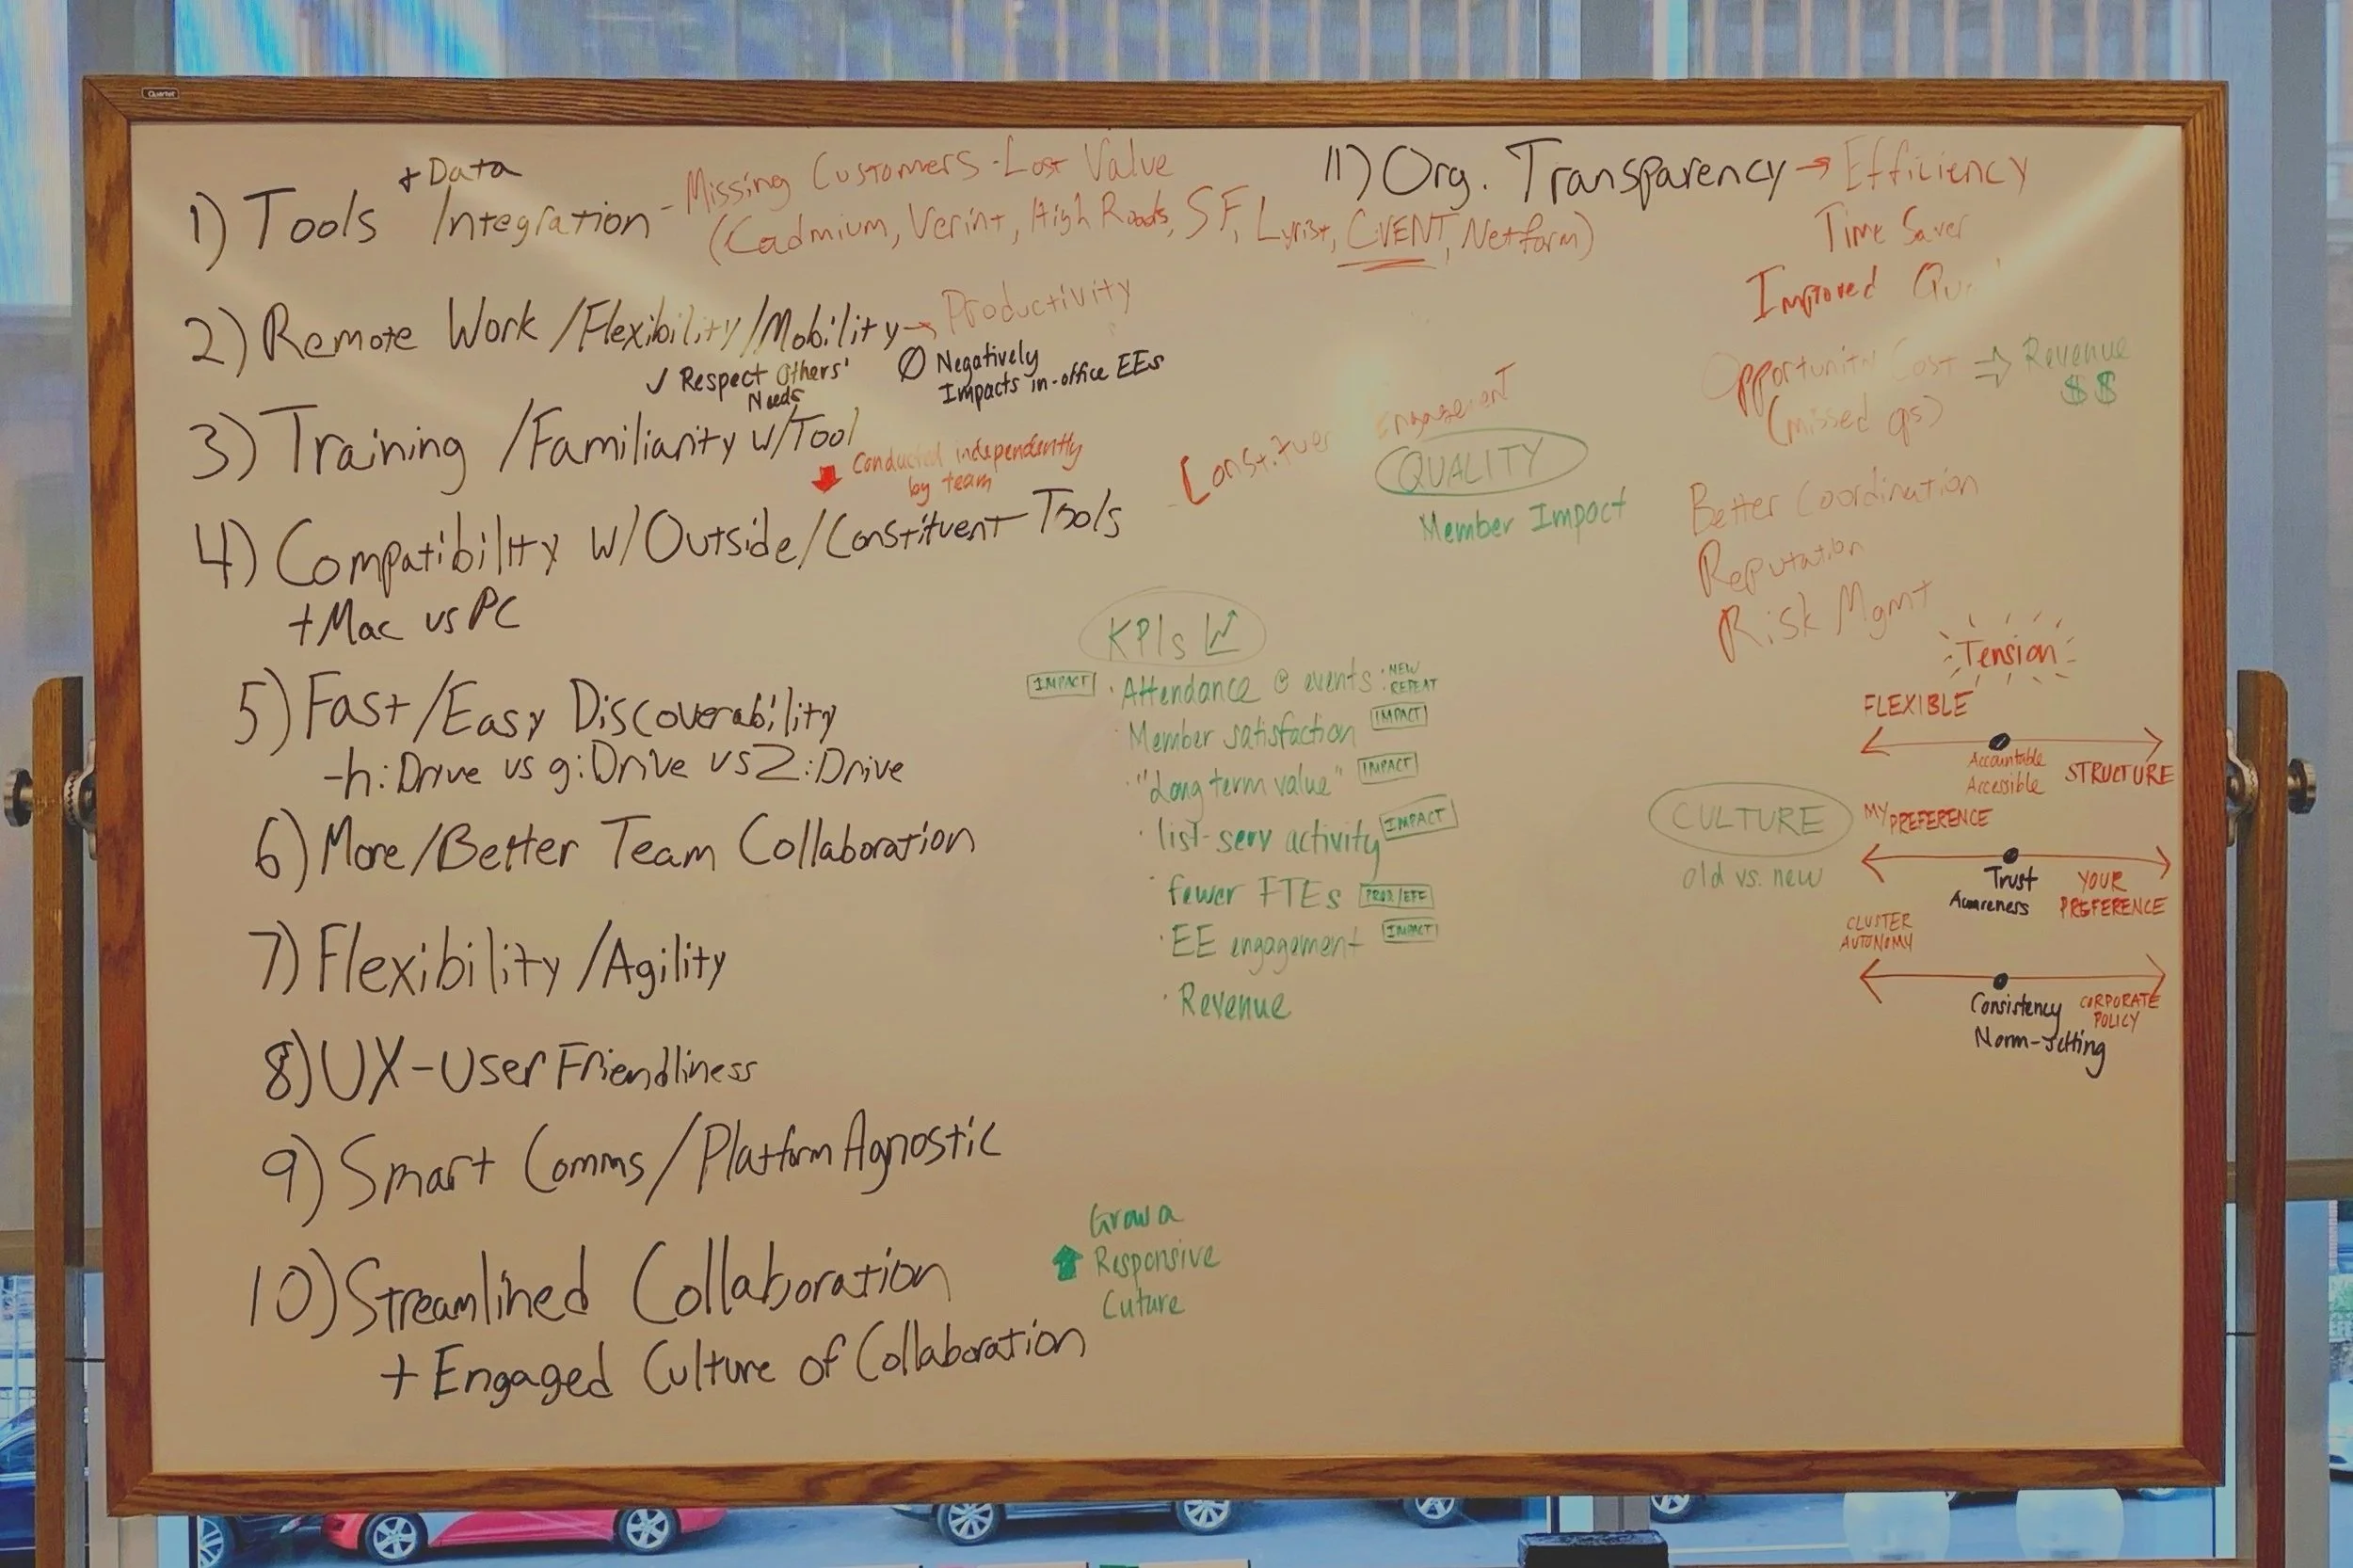 Quartet
+ Data
1) Tools Integration - Missing Customers - Lost Value
(Cadmium, Verint, High Roads, SF, Lyrist, CVENT, Netform)
2) Remote Work /Flexibility/Mobility → Productivity
✓ Respect Others'
Needs
∅ Negatively
Impacts in-office EEs
3) Training /Familiarity w/Tool
Conducted independently
by team
4) Compatibility w/Outside/Constituent Tools
+Mac vs PC
5) Fast/Easy Discoverability
-h:Drive vs g:Drive vs Z:Drive
6) More/Better Team Collaboration
7) Flexibility/Agility
8) UX-User Friendliness
9) Smart Comms/Platform Agnostic
10) Streamlined Collaboration
+ Engaged Culture of Collaboration
Grow a
Responsive
Cuture
Engagement
QUALITY
Member Impact
KPIs
IMPACT · Attendance @ events : NEW
REPEAT
· Member satisfaction IMPACT
· "Long term value" IMPACT
· list-serv activity IMPACT
· fewer FTEs PROD/EFF
· EE engagement IMPACT
· Revenue
11) Org. Transparency → Efficiency
Time Saver
Improved
Opportunity Cost ⇒ Revenue
(missed ops) $$
Better Coordination
Reputation
Risk Mgmt
Tension
FLEXIBLE
Accountable
Accessible
STRUCTURE
CULTURE
old vs. new
MY PREFERENCE
Trust
Awareness
YOUR
PREFERENCE
CLUSTER
AUTONOMY
Consistency
Norm-setting
CORPORATE
POLICY